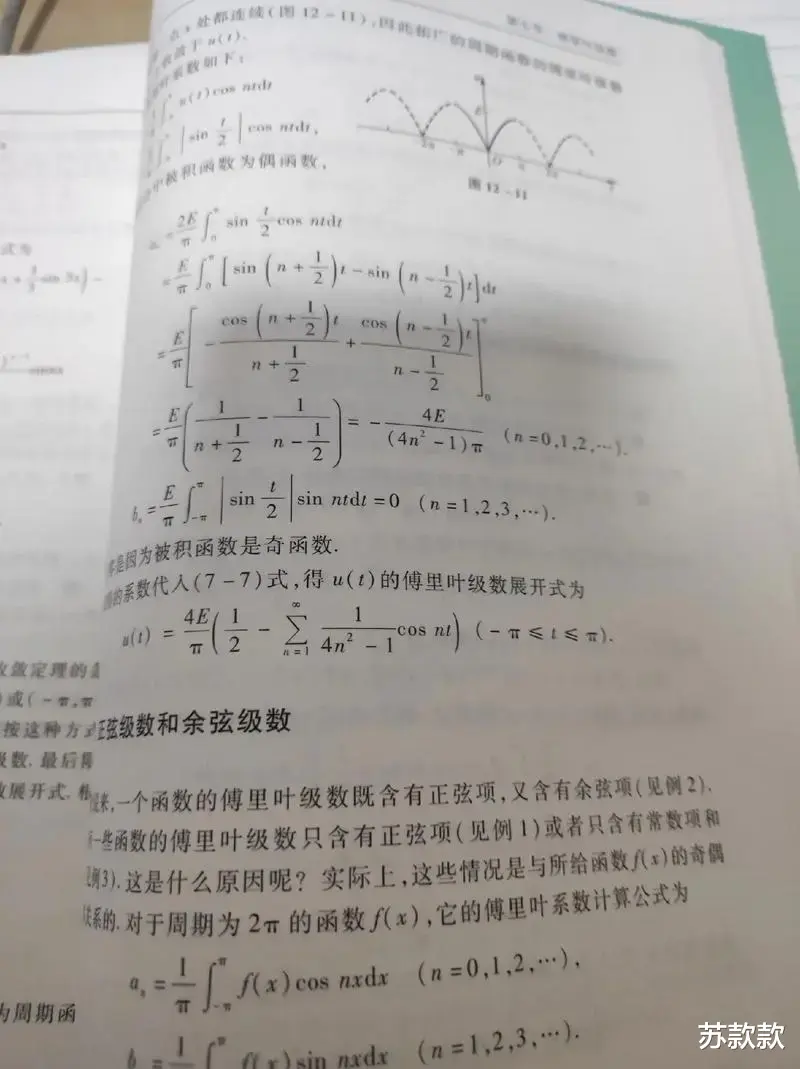 第七节 傅里叶级数
点x处都连续(图12-11),因此拓广的周期函数的傅里叶级数
于u(t).
系数如下:
u(t)cos ntdt
|sin t/2| cos ntdt,
中被积函数为偶函数,
图12-11
= 2E/π ∫₀^π sin t/2 cos ntdt
= E/π ∫₀^π [sin(n+1/2)t-sin(n-1/2)t]dt
= E/π [-cos(n+1/2)t/(n+1/2)+cos(n-1/2)t/(n-1/2)]₀^π
= E/π (1/(n+1/2)-1/(n-1/2))=-4E/((4n²-1)π) (n=0,1,2,…).
bₙ= E/π ∫₋π^π |sin t/2| sin ntdt=0 (n=1,2,3,…).
是因为被积函数是奇函数.
的系数代入(7-7)式,得u(t)的傅里叶级数展开式为
u(t)= 4E/π (1/2 - ∑ₙ₌₁^∞ 1/(4n²-1) cos nt) (-π≤t≤π).
正弦级数和余弦级数
来,一个函数的傅里叶级数既含有正弦项,又含有余弦项(见例2).
一些函数的傅里叶级数只含有正弦项(见例1)或者只含有常数项和
例3).这是什么原因呢?实际上,这些情况是与所给函数f(x)的奇偶
关系的.对于周期为2π的函数f(x),它的傅里叶系数计算公式为
aₙ= 1/π ∫₋π^π f(x)cos nxdx (n=0,1,2,…),
b = 1/π ∫ f(x)sin nxdx (n=1,2,3,…).
式为
敛定理的
或(-π,π
按这种方式
级数.最后
展开式.
为周期函
苏款款